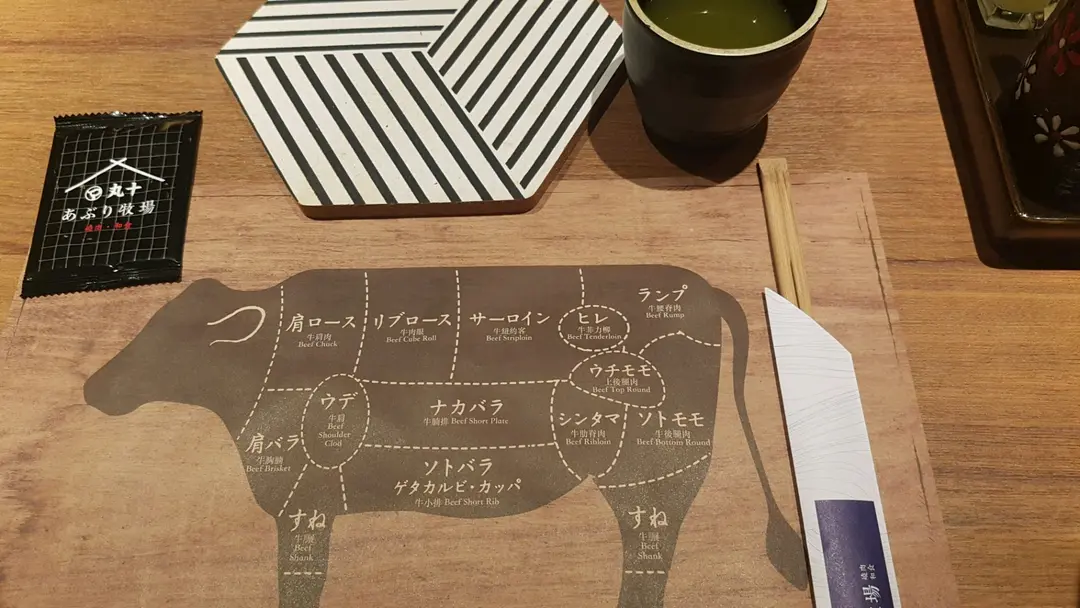 丸十
あぶり牧場
燒肉・和食
肩ロース
牛肩肉
Beef Chuck
リブロース
牛肉眼
Beef Cube Roll
サーロイン
牛紐約客
Beef Striploin
ヒレ
牛菲力柳
Beef Tenderloin
ランプ
牛臀脊肉
Beef Rump
ウチモモ
上後腿肉
Beef Top Round
ウデ
牛肩
Beef
Shoulder
Clod
ナカバラ
牛腩排 Beef Short Plate
シンタマ
牛肋脊肉
Beef Ribloin
ソトモモ
牛後腿肉
Beef Bottom Round
肩バラ
牛胸腩
Beef Brisket
ソトバラ
ゲタカルビ・カッパ
牛小排 Beef Short Rib
すね
牛腱
Beef
Shank
すね
牛腱
Beef
Shank
場
燒肉
和食